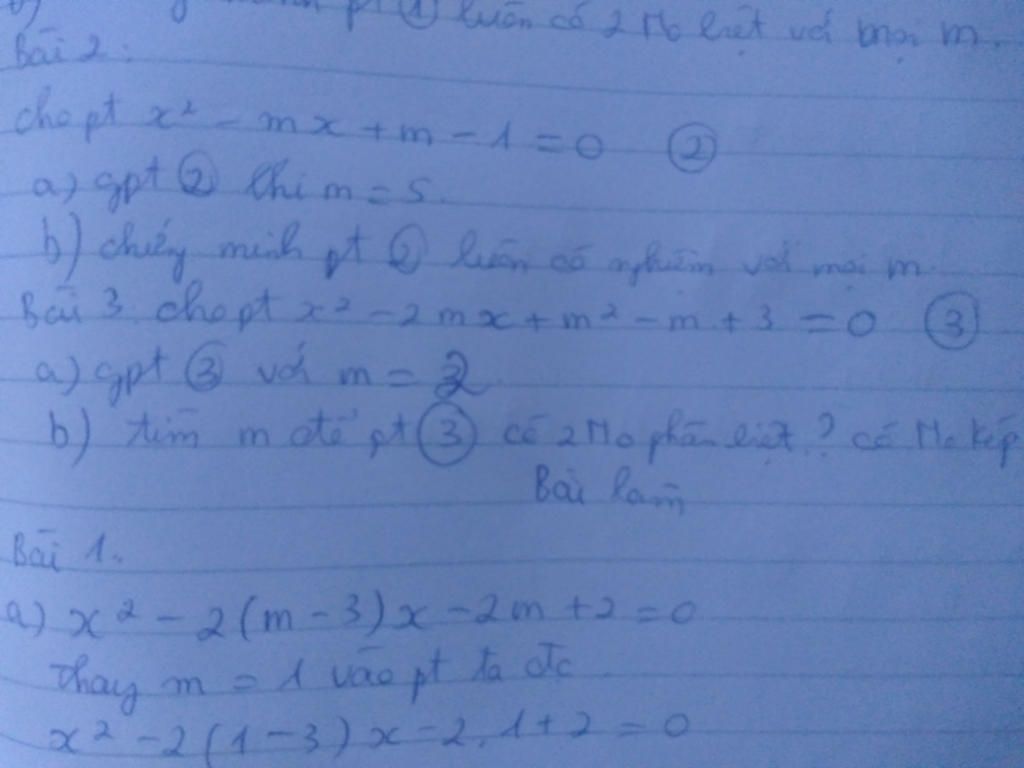 pt ① luôn có 2 No biệt với mọi m.
Bài 2:
cho pt x² - mx + m - 1 = 0 ②
a) gpt ② khi m = 5.
b) chứng minh pt ② luôn có nghiệm với mọi m
Bài 3. cho pt x² - 2mx + m² - m + 3 = 0 ③
a) gpt ③ với m = 3
b) tìm m để pt ③ có 2 No phân biệt? có No kép
Bài làm
Bài 1.
a) x² - 2(m - 3)x - 2m + 2 = 0
Thay m = 1 vào pt ta đc
x² - 2(1 - 3)x - 2.1 + 2 = 0